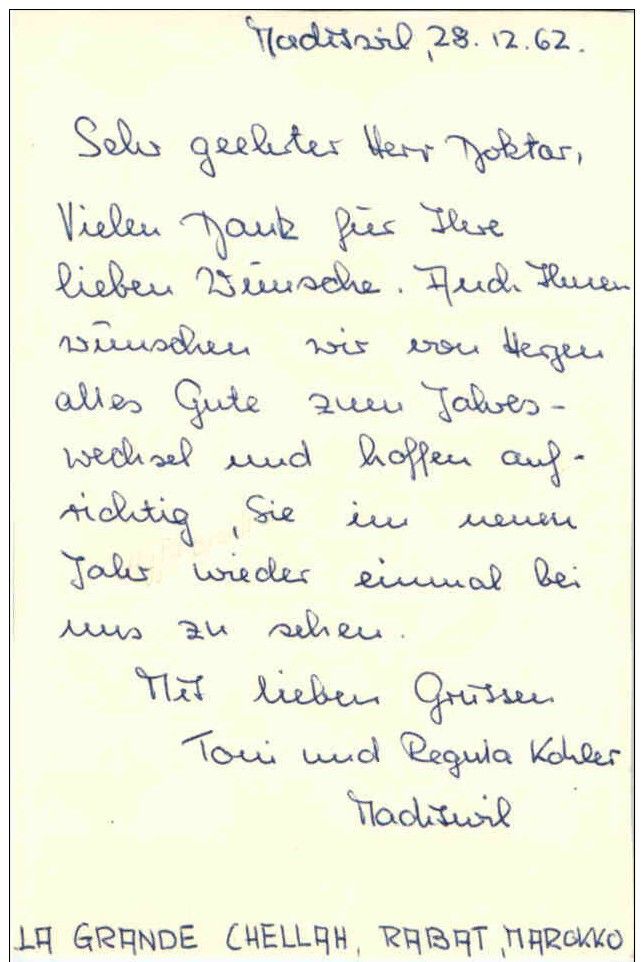 Madiswil, 28. 12. 62.
Sehr geehrter Herr Doktor,
Vielen Dank für Ihre
lieben Wünsche. Auch Ihnen
wünschen wir von Herzen
alles Gute zum Jahres-
wechsel und hoffen auf-
richtig, Sie im neuen
Jahr wieder einmal bei
uns zu sehen.
Mit lieben Grüssen
Toni und Regula Kohler
Madiswil
LA GRANDE CHELLAH, RABAT, MAROKKO